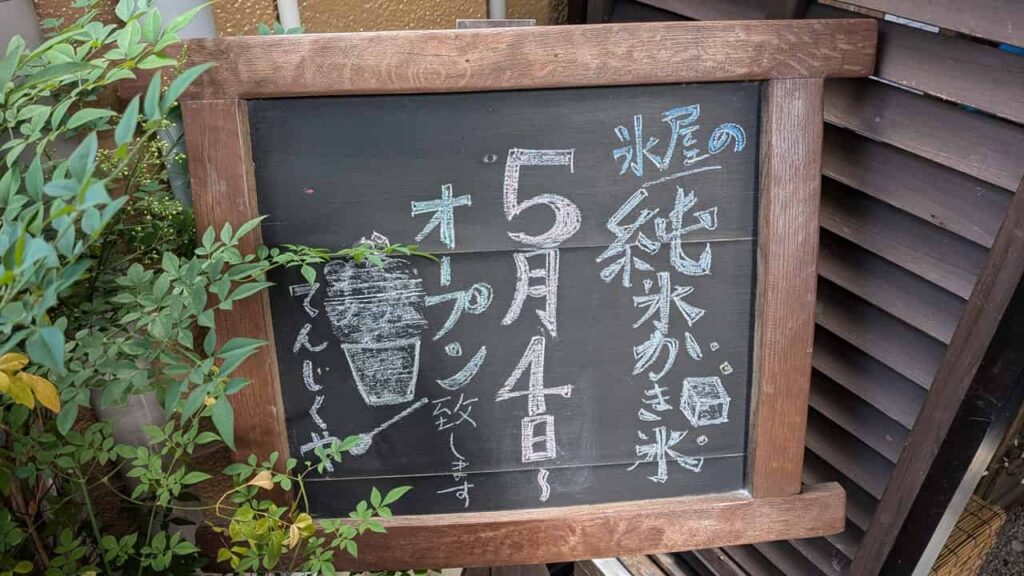 氷屋の
純氷かき氷
5月4日〜
オープン
致します
てんじくや